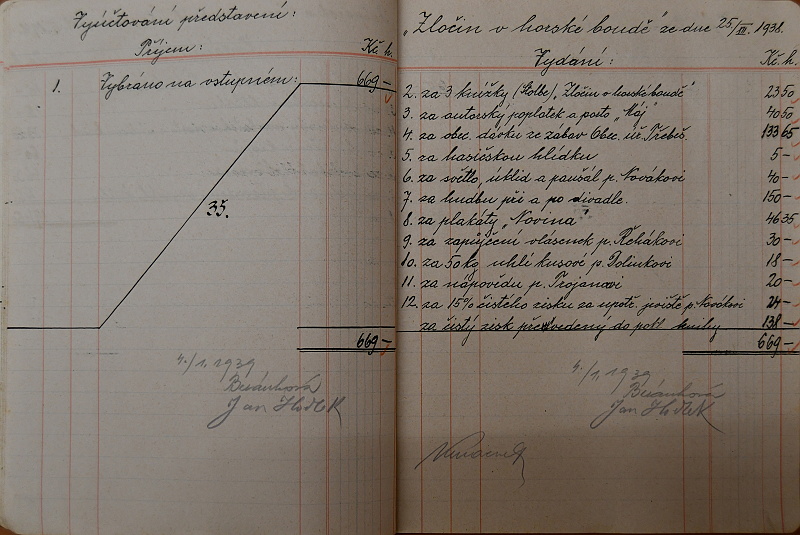 Vyúčtování představení:
Příjem: Kč. h.
1. Vybráno na vstupném: 669 -
35.
669 -
4./1. 1939
Beránková
Jan Hodek
"Zločin v horské boudě" ze dne 25./III. 1938.
Vydání: Kč. h.
2. za 3 knížky (Kolbe) "Zločin v horské boudě" 23 50
3. za autorský poplatek a porto "Máj" 40 50
4. za obec. dávku ze zábav Obec. úř. Třebeš. 133 65
5. za hasičskou hlídku 5 -
6. za světlo, úklid a paušál p. Novákovi 40 -
7. za hudbu při a po divadle. 150 -
8. za plakáty "Novina" 46 35
9. za zapůjčení vlásenek p. Řehákovi 30 -
10. za 50 kg uhlí kusové p. Dolinkovi 18 -
11. za nápovědu p. Trojanovi 20 -
12. za 15% čistého zisku za upotř. jeviště p. Novákovi 24 -
za čistý zisk převedený do pokl. knihy 138 -
669 -
4./1. 1939
Beránková
Jan Hodek